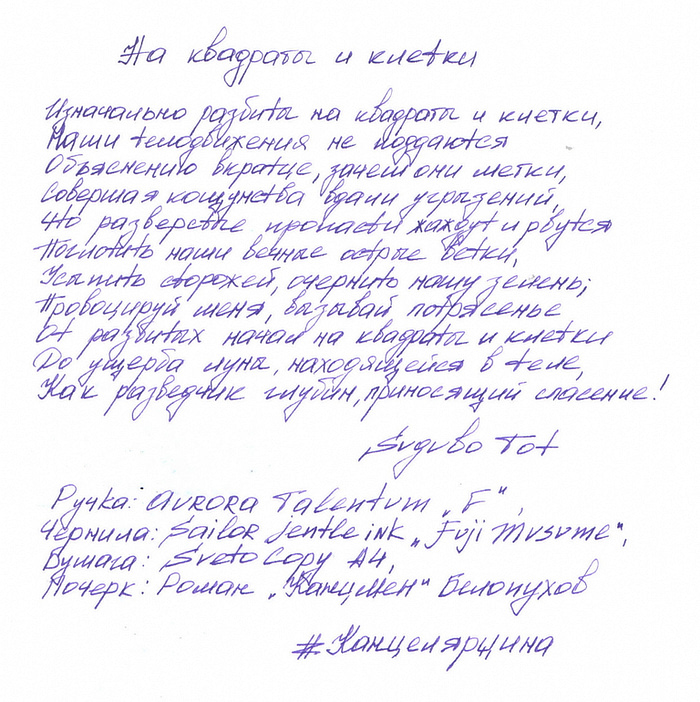 На квадраты и клетки
Изначально разбиты на квадраты и клетки,
Наши телодвижения не поддаются
Объяснению вкратце, зачем они метки,
Совершая кощунства вдали угрызений,
Что разверстые пропасти жаждут и рвутся
Поглотить наши вечные острые ветки,
Усыпить сторожей, очернить нашу зелень;
Провоцируй меня, вызывай потрясенье
От разбитых начал на квадраты и клетки
До ущерба луны, находящейся в теле,
Как разведчик глубин, приносящий спасение!
Sugubo Tot
Ручка: Aurora Talentum „F",
Чернила: Sailor Jentle ink „Fuji Musume",
Бумага: SvetoCopy A4,
Почерк: Роман „КанцМен" Белопухов
#Канцелярщина